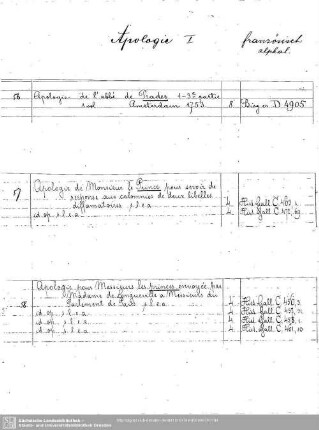 Apologie I französisch
alphat.
56 Apologie de l'abbé de Prades 1-3e partie
Amsterdam 1753 8 Biog. m. D 4905
57 Apologie de Monsieur le Prince pour servir de
response aux calomnies de deux libelles
diffamatoires s. l. e. a. 4 Hist. Gall. C.
id. op. s. l. e. a. 4 Hist. Gall. C.
58 Apologie pour Messieurs les princes envoyée par
Madame de Longueville à Messieurs du
Parlement de Paris s. l. e. a. 4 Hist. Gall. C. 456,
id. op. s. l. e. a. 4 Hist. Gall. C. 457,
id. op. s. l. e. a. 4 Hist. Gall. C. 458,
id. op. s. l. e. a. 4 Hist. Gall. C. 461, 10
Sächsische Landesbibliothek -
Staats- und Universitätsbibliothek Dresden